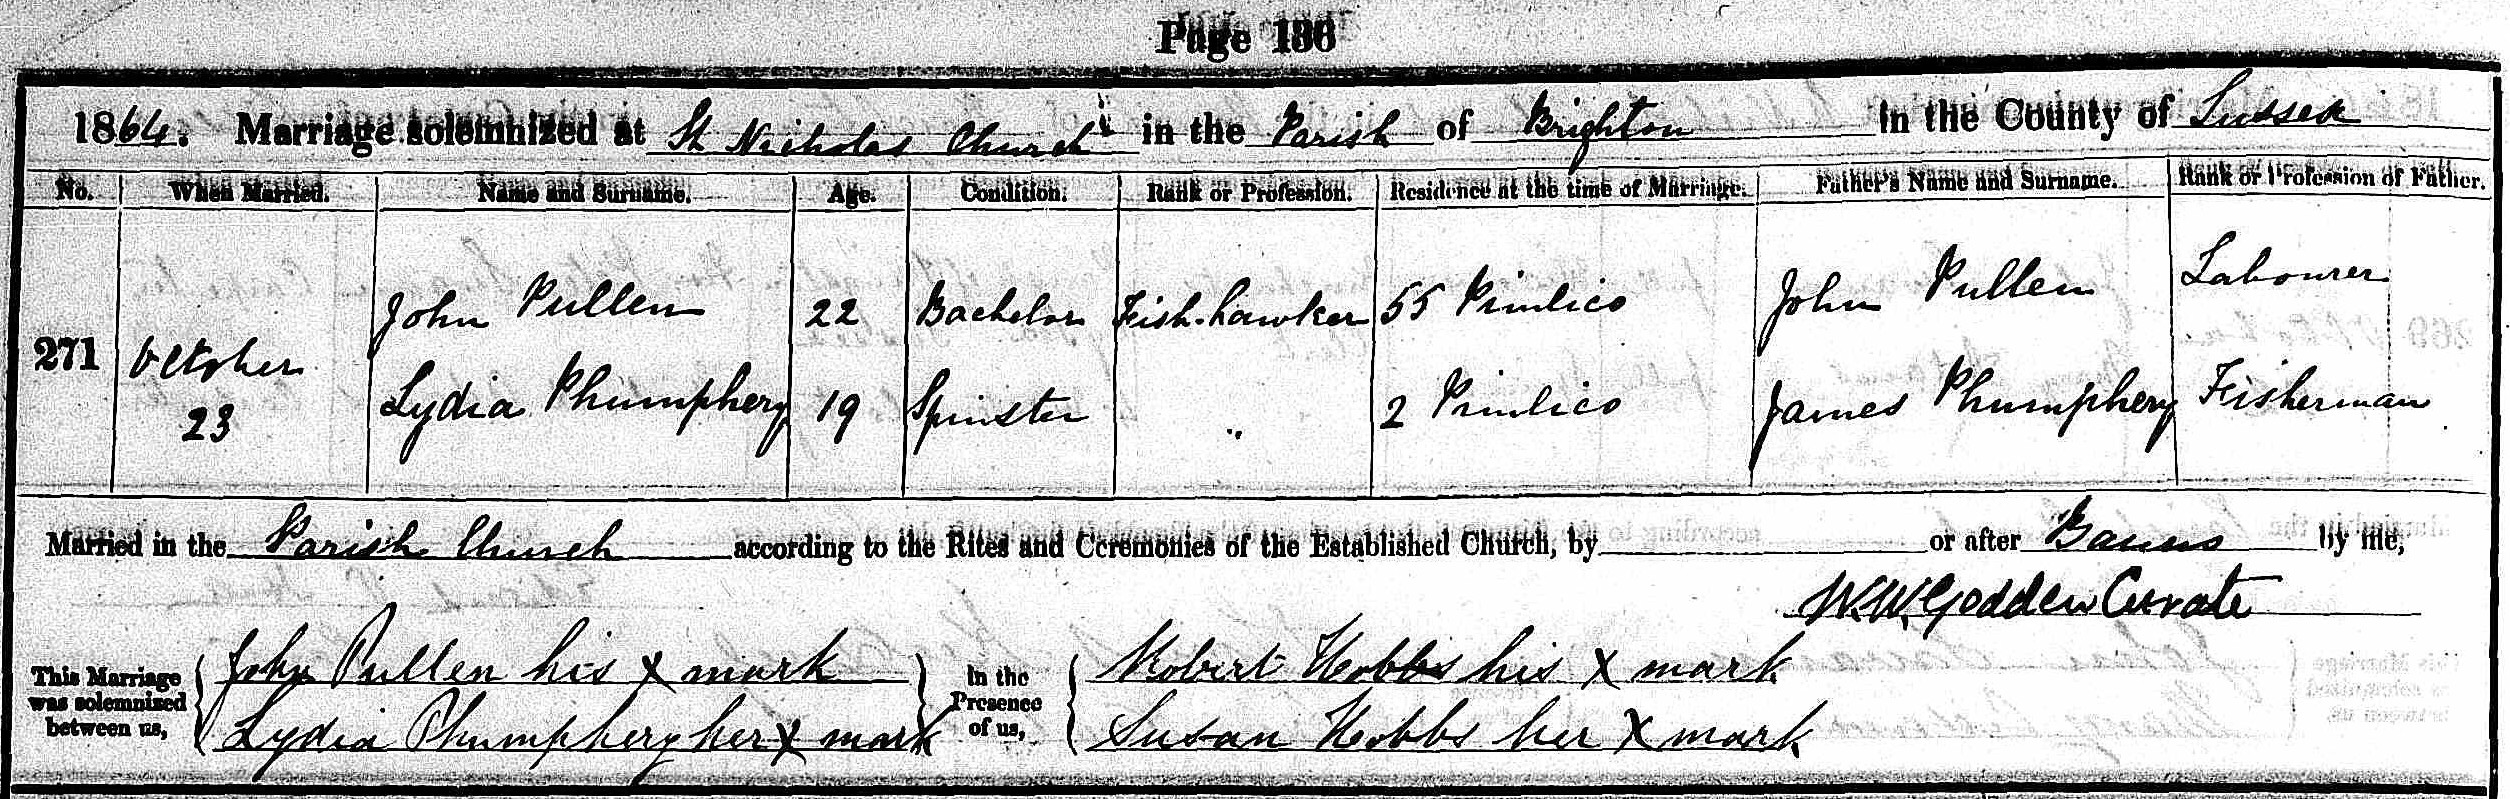 Page 136
1864. Marriage solemnized at St Nicholas Church in the Parish of Brighton in the County of Sussex
No. When Married. Name and Surname. Age. Condition. Rank or Profession. Residence at the time of Marriage. Father's Name and Surname. Rank or Profession of Father.
John Pullen 22 Bachelor Fish-hawker 55 Pimlico John Pullen Labourer
271 October
23 Lydia Phumphery 19 Spinster " 2 Pimlico James Phumphery Fisherman
Married in the Parish Church according to the Rites and Ceremonies of the Established Church, by or after Banns by me,
W.W. Godden Curate
This Marriage was solemnized between us, John Pullen his x mark In the Presence of us, Robert Hobbs his x mark
Lydia Phumphery her x mark Susan Hobbs her x mark